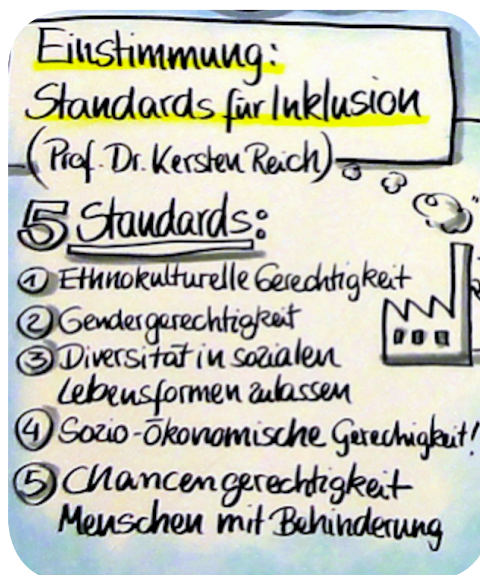 Einstimmung:
Standards für Inklusion
(Prof. Dr. Kersten Reich)
5 Standards:
1 Ethnokulturelle Gerechtigkeit
2 Gendergerechtigkeit
3 Diversität in sozialen
Lebensformen zulassen
4 Sozio-Ökonomische Gerechigkeit!
5 Chancengerechtigkeit
Menschen mit Behinderung